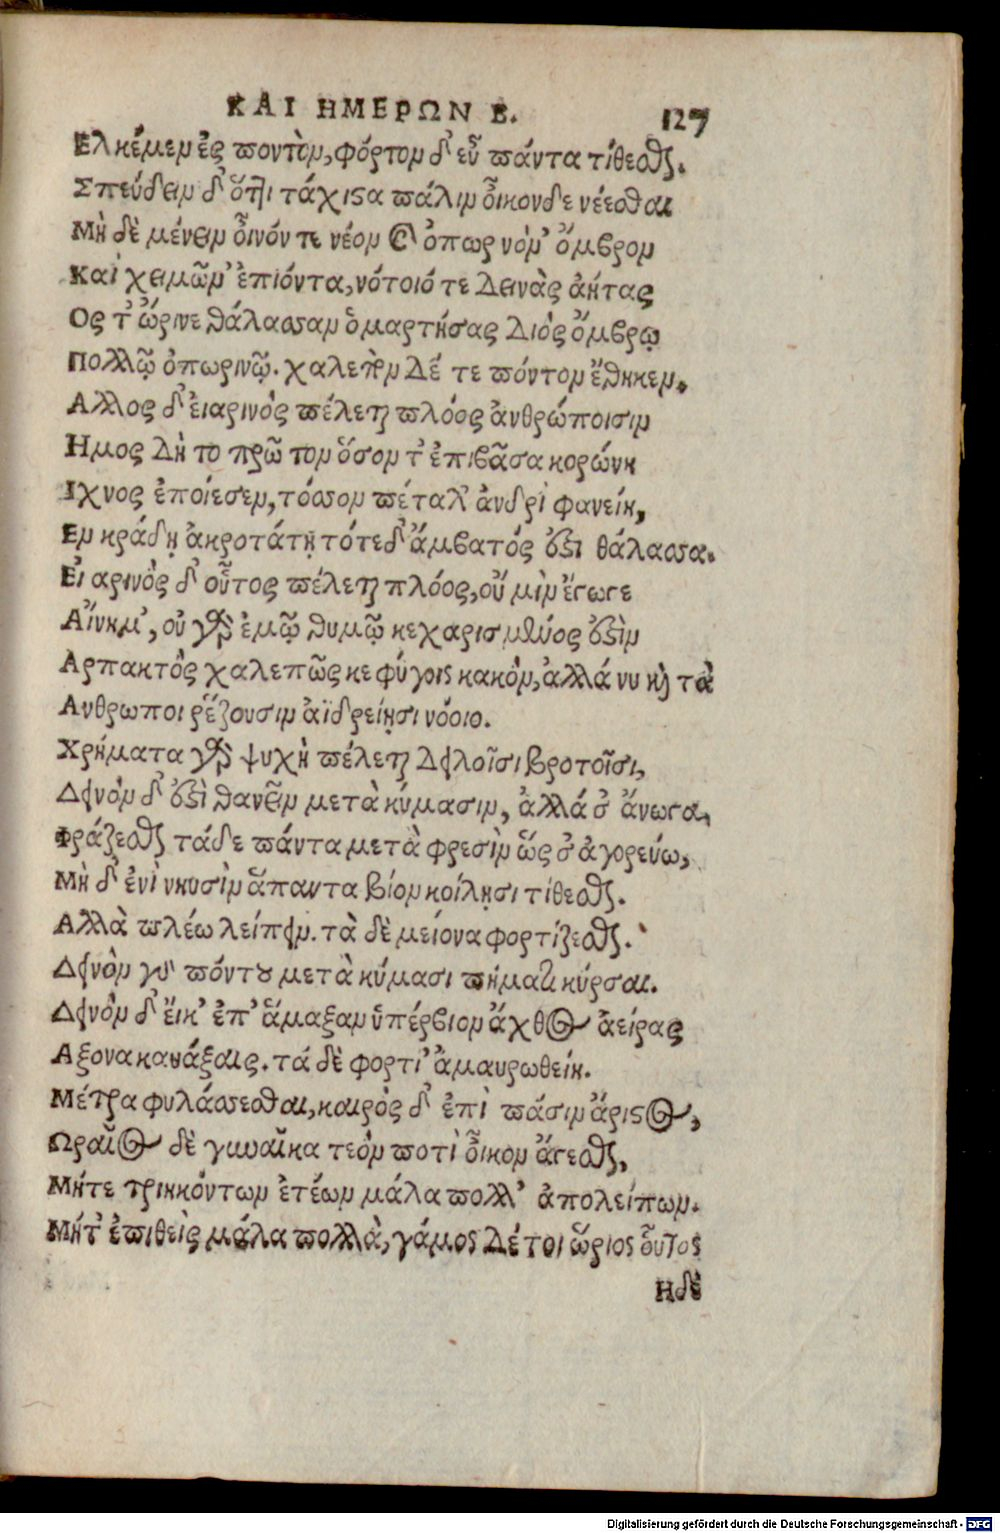 ΚΑΙ ΗΜΕΡΩΝ Β. 127
Ελκέμεν ἐς ποντὸν, φόρτον δ' εὖ πάντα τίθεσθαι.
Σπεύδειν δ' ὅττι τάχιστα πάλιν οἶκονδε νέεσθαι
Μὴ δὲ μένειν οἶνόν τε νέον καὶ ὀπωρινὸν ὄμβρον
Καὶ χειμῶν' ἐπιόντα, νότοιό τε δεινὰς ἀήτας
Ος τ' ὤρινε θάλασσαν ὁμαρτήσας Διὸς ὄμβρῳ
Πολλῷ ὀπωρινῷ. χαλεπὸν Δέ τε πόντον ἔθηκεν.
Αλλος δ' ἐιαρινὸς πέλεται πλόος ἀνθρώποισιν
Ημος Δὴ το πρῶτον ὅσον τ' ἐπιβᾶσα κορώνη
Ιχνος ἐποίεσεν, τόσσον πέταλ' ἀνδρὶ φανείη,
Εν κράδῃ ἀκροτάτῃ τότε δ' ἄμβατός ἐστι θάλασσα.
Εἰ αρινὸς δ' οὗτος πέλεται πλόος, οὔ μὶν ἔγωγε
Αἴνημ', οὐ γὰρ ἐμῷ θυμῷ κεχαρισμένος ἐστὶν
Αρπακτὸς χαλεπῶς κε φύγοις κακὸν, ἀλλά νυ καὶ τὰ
Ανθρωποι ῥέζουσιν ἀϊδρείῃσι νόοιο.
Χρήματα γὰρ ψυχὴ πέλεται Δειλοῖσι βροτοῖσι,
Δεινὸν δ' ἐστὶ θανεῖν μετὰ κύμασιν, ἀλλά σ' ἄνωγα,
Φράζεσθαι τάδε πάντα μετὰ φρεσὶν ὥς σ' ἀγορεύω,
Μὴ δ' ἐνὶ νηυσὶν ἅπαντα βίον κοίλῃσι τίθεσθαι.
Αλλὰ πλέω λείπειν. τὰ δὲ μείονα φορτίζεσθαι.
Δεινὸν γὰρ πόντου μετὰ κύμασι πήματι κύρσαι.
Δεινὸν δ' ἔικ' ἐπ' ἅμαξαν ὑπέρβιον ἄχθος ἀείρας
Αξονα καυάξαις. τά δὲ φορτί' ἀμαυρωθείη.
Μέτρα φυλάσσεσθαι, καιρὸς δ' ἐπὶ πάσιν ἄριστος,
Ωραῖος δὲ γυναῖκα τεὸν ποτὶ οἶκον ἄγεσθαι,
Μήτε τριηκόντων ἐτέων μάλα πολλ' ἀπολείπων.
Μήτ' ἐπιθεὶς μάλα πολλὰ, γάμος Δέ τοι ὥριος οὗτος
Ηδὲ
Digitalisierung gefördert durch die Deutsche Forschungsgemeinschaft - DFG